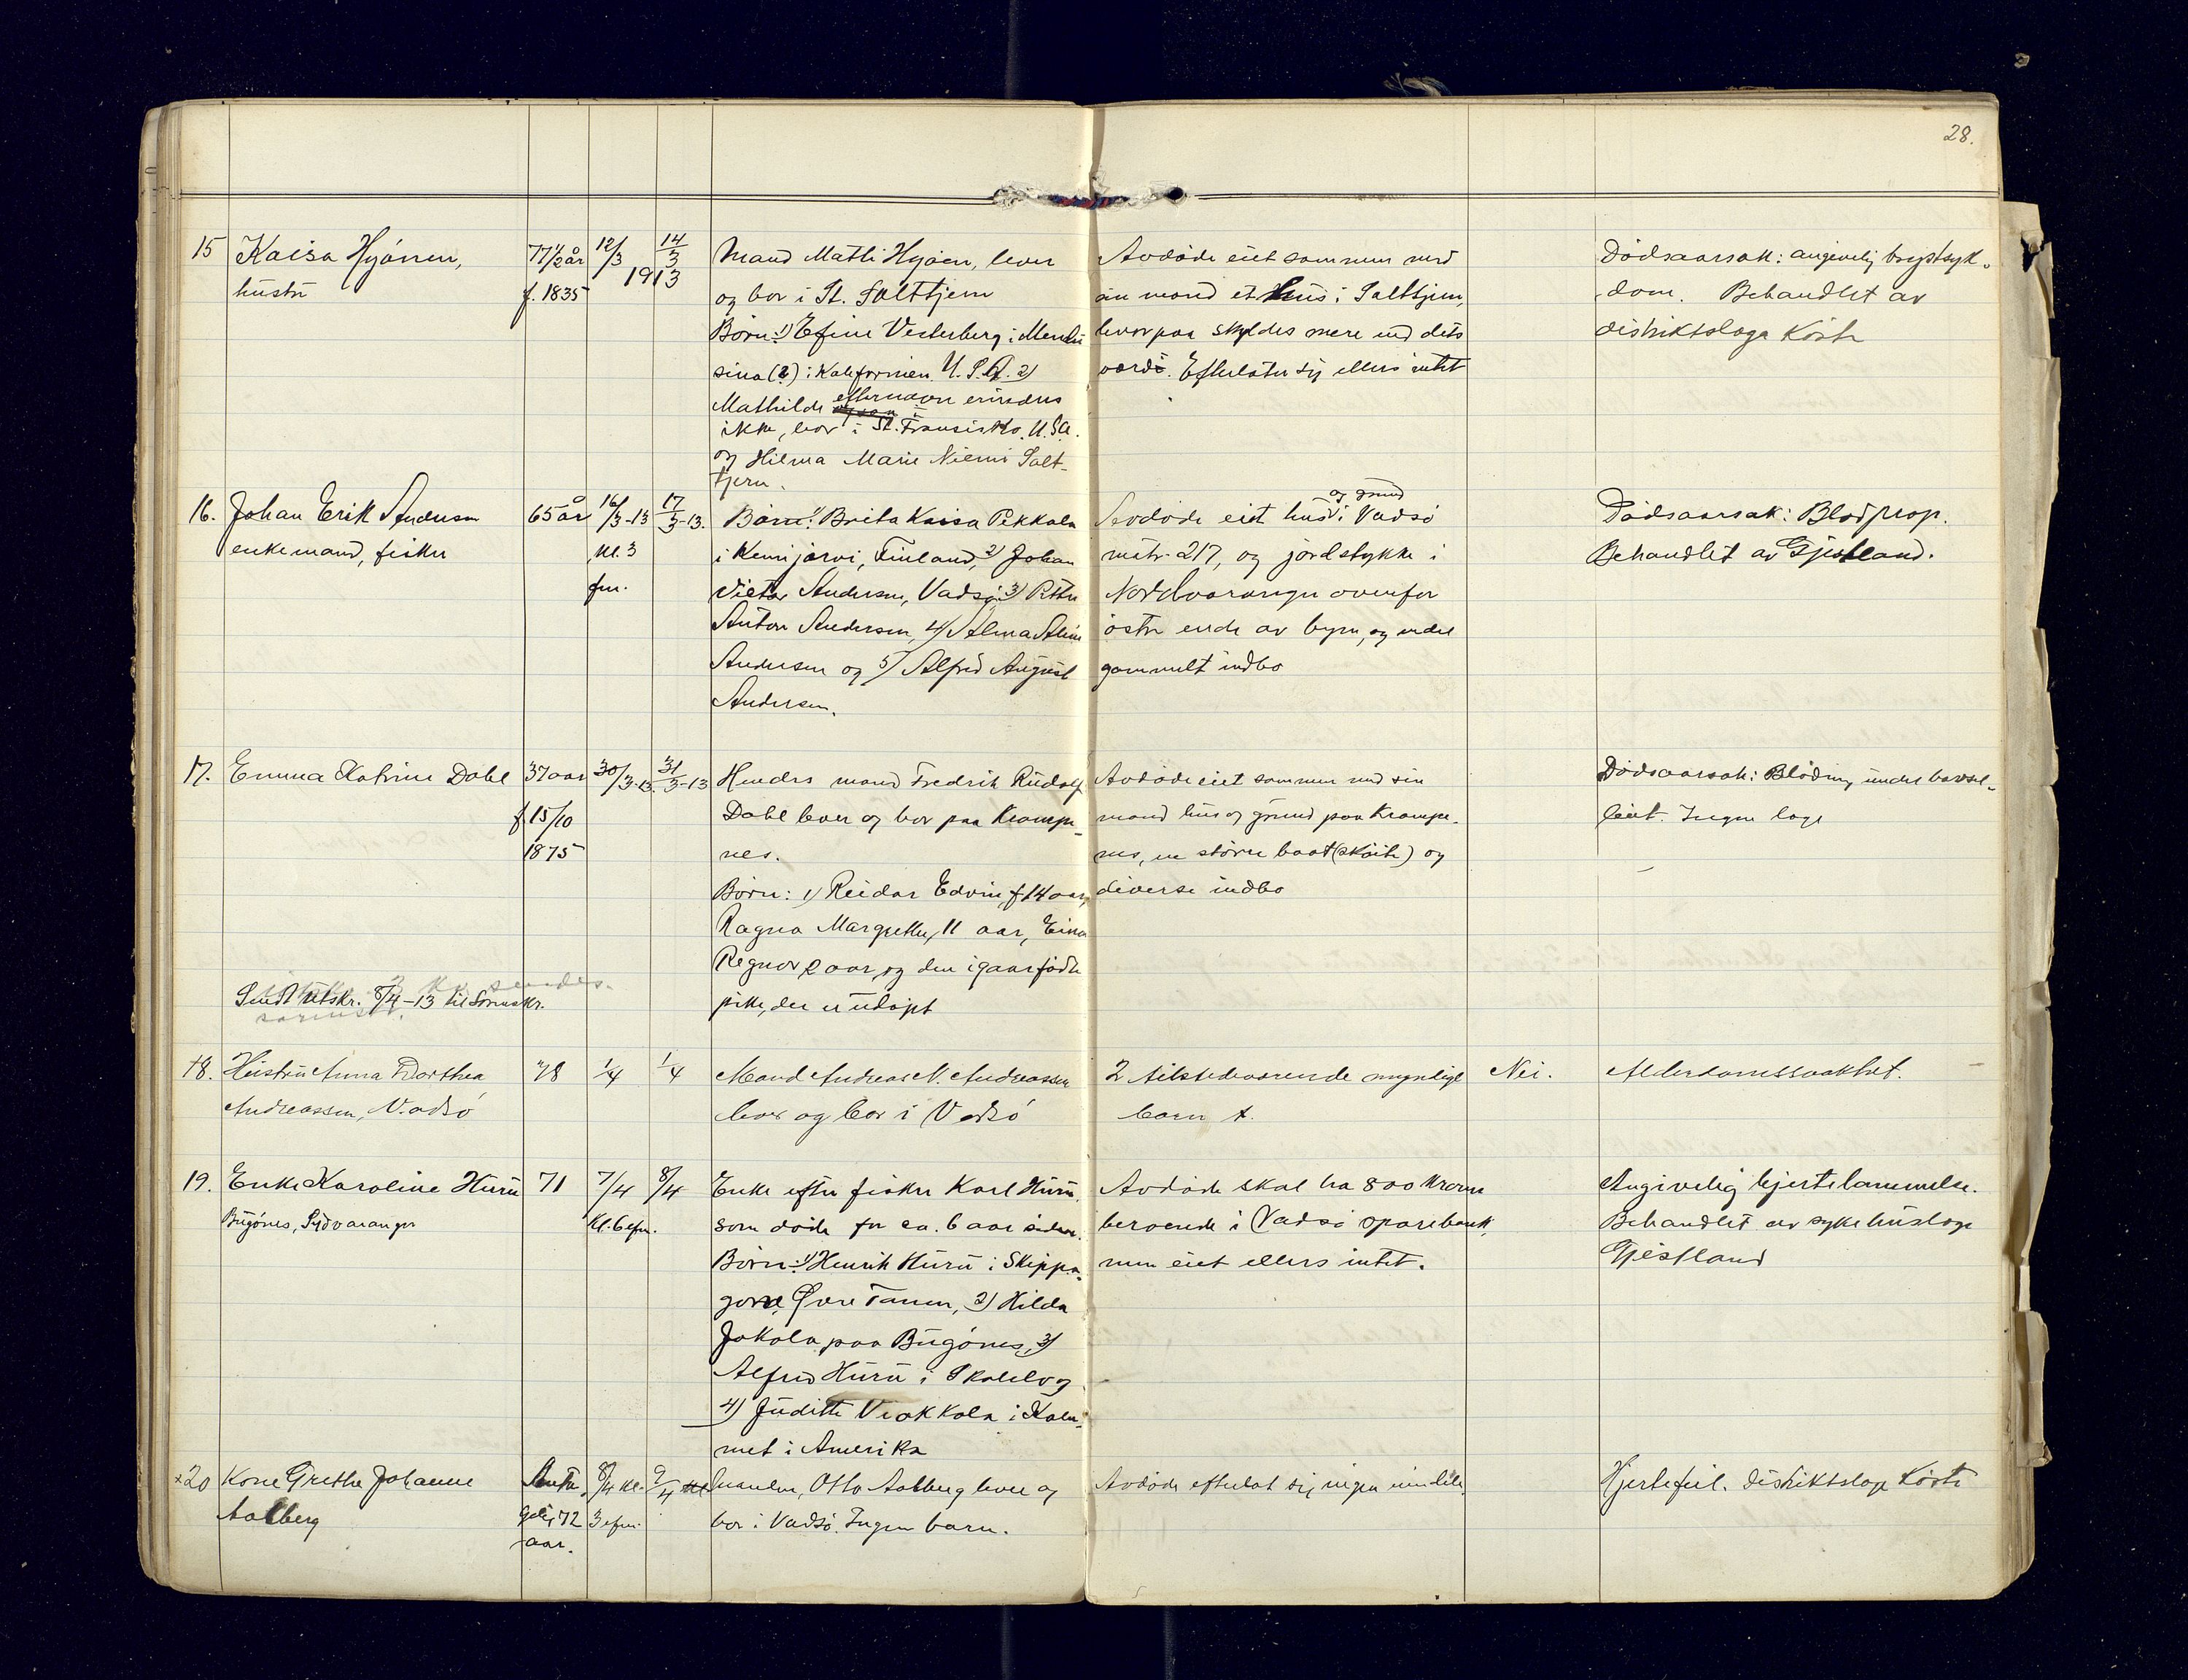 28.
15 Kaisa Hyönen,
hustru
77 1/2 år
f. 1835
12/3
14/3
1913
Mand Matti Hyöen, lever
og bor i St. Salttjern
Børn: 1) Efine Vesterberg i Mendo
sina (?) i Kaliformien U.S.A. 2)
Mathilde efternavn erindres
ikke, bor i St. Fransisko. U.S.A.
og Hilma Marie Niemi Salt-
tjern.
Avdöde eiet sammen med
sin mand et hus i Salttjern,
hvorpaa skyldes mere end dets
værdi. Efterlater sig ellers intet
Dödsaarsak: angivelig brystsyk-
dom. Behandlet av
distriktslæge Kosti
16. Johan Erik Andersen
enkemand, fisker
65 år
16/3-13
kl. 3
fm.
17/3-13.
Børn: 1) Brita Kaisa Pekkala
i Kemijärvi, Finland, 2) Johan
Victor Andersen, Vadsö, 3) Petter
Anton Andersen, 4) Selma Aline
Andersen og 5) Alfred August
Andersen.
og grund
Avdöde eiet hus i Vadsö
matr. 217, og jordstykke i
Nordvaranger ovenfor
östre ende av byen, og endel
gammelt indbo
Dödsaarsak: Blodprop.
Behandlet av Gjestland.
17. Emma Katrine Dahl
37 aar
f. 15/10
1875
30/3-13.
31/3-13
Hendes mand Fredrik Rudolf
Dahl lever og bor paa Krampe-
nes.
Børn: 1) Reidar Edvin, f 14 aar,
Ragna Margrethe, 11 aar, Einar
Regnor 2 aar, og den igaar födte
pike, der er udöpt
Avdöde eiet sammen med sin
mand hus og grund paa Krampe-
nes, en större baat (sköite) og
diverse indbo
Dödsaarsak: Blödning under barsel-
leiet. Ingen læge
Sendt utskr. 8/4-13 til Sorenskr.
18. Hustru Anna Dorthea
Andreassen, Vadsö
78
1/4
1/4
Mand Andreas N. Andreassen
lever og bor i Vadsö
2 tilstedeværende myndige
barn
Nei.
Alderdomssvakhet.
19. Enke Karoline Huru
Bugönes, Sydvaranger
71
7/4
Kl. 6 efm.
8/4
Enke efter fisker Karl Huru,
som döde for ca. 6 aar siden.
Børn: 1) Henrik Huru i Skippa-
gorre, Övre Tanen, 2) Hilda
Jakola paa Bugönes, 3)
Alfred Huru i Skallelv og
4) Judith Viakkola i Kalu-
met i Amerika
Avdöde skal ha 800 kroner
beroende i Vadsö sparebank,
men eiet ellers intet.
Angivelig hjertelammelse.
Behandlet av sykehuslæge
Gjestland
x20 Kone Grethe Johanne
Aalberg
Anta-
gelig 72
aar.
8/4 kl.
3 efm.
9/4
manden, Otto Aalberg lever og
bor i Vadsö. Ingen barn.
Avdöde efterlot sig ingen midler.
Hjertefeil. Distriktslæge Kosti